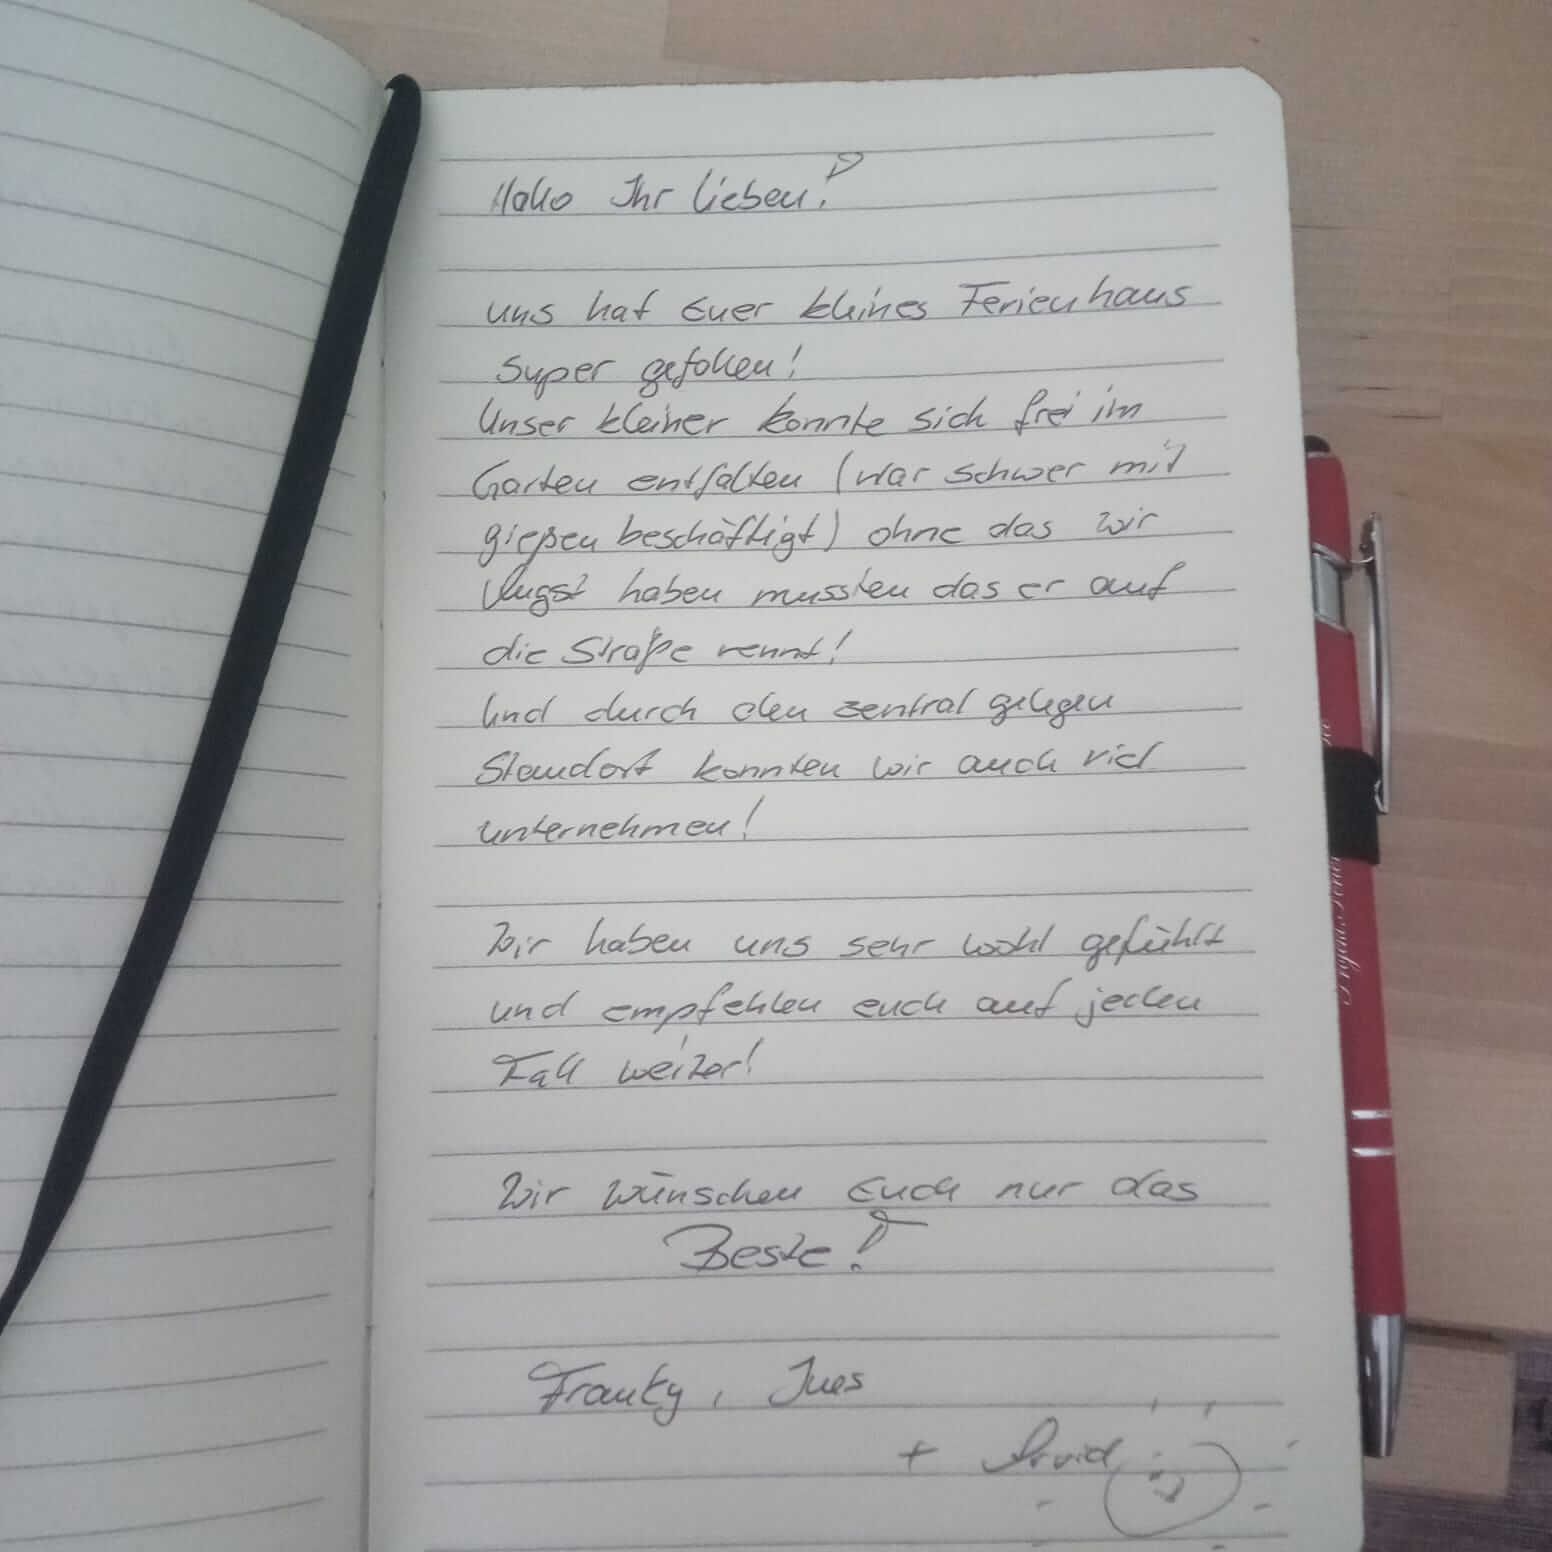 Hallo Ihr lieben!
uns hat Euer kleines Ferienhaus
super gefallen!
Unser kleiner konnte sich frei im
Garten entfalten (war schwer mit
gießen beschäftigt) ohne das wir
Angst haben mussten das er auf
die Straße rennt!
Und durch den zentral gelegen
Standort konnten wir auch viel
unternehmen!
Wir haben uns sehr wohl gefühlt
und empfehlen euch auf jeden
Fall weiter!
Wir wünschen Euch nur das
Beste!
Franky, Ines
+ Arvid